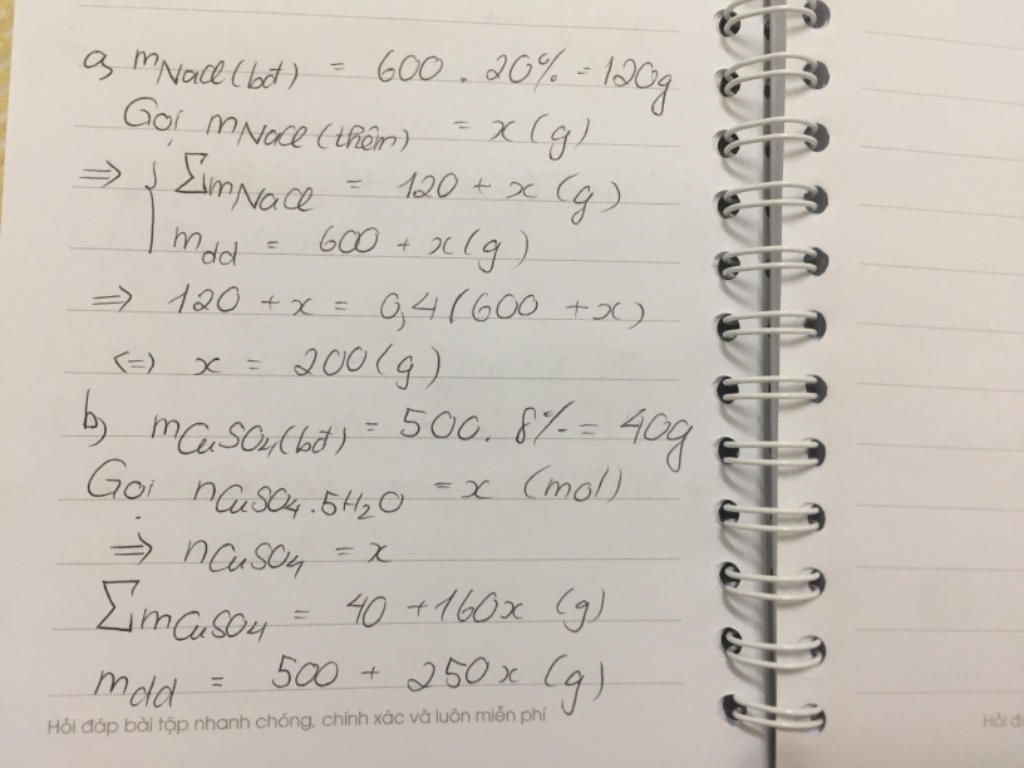 a, mNaCl(bđ) = 600 . 20% = 120g
Gọi mNaCl(thêm) = x (g)
⇒ { ΣmNaCl = 120 + x (g)
mdd = 600 + x (g)
⇒ 120 + x = 0,4 (600 + x)
<=> x = 200 (g)
b, mCuSO4(bđ) = 500. 8% = 40g
Gọi nCuSO4.5H2O = x (mol)
⇒ nCuSO4 = x
ΣmCuSO4 = 40 + 160x (g)
mdd = 500 + 250x (g)
Hỏi đáp bài tập nhanh chóng, chính xác và luôn miễn phí
Hỏi